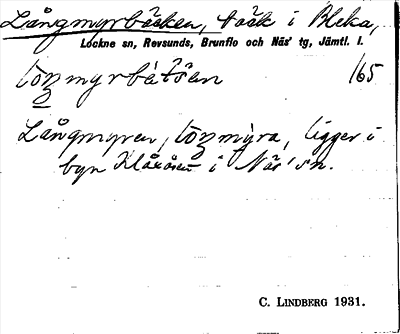 Långmyrbäcken, bäck i Bleka,
Lockne sn, Revsunds, Brunflo och Näs' tg, Jämtl. l.
165
Långmyren, ligger i
byn Klåxåsen i Näs' sn.
C. LINDBERG 1931.